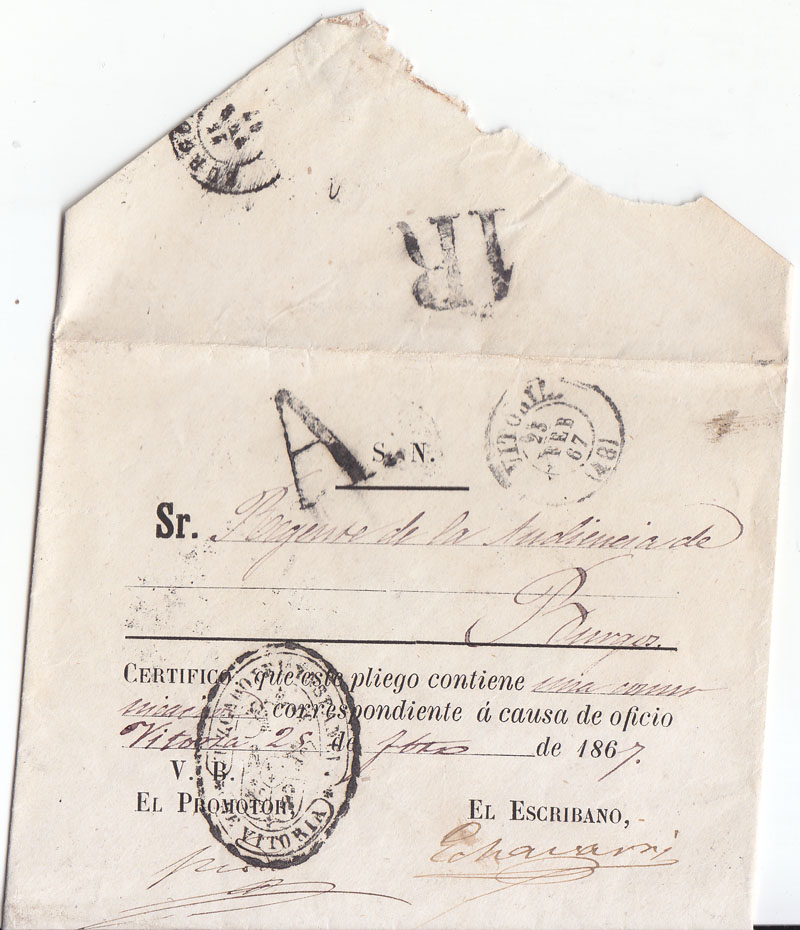 BURGOS
1R
A
S. N.
VITORIA
25
FEB
67
(18)
Sr. Regente de la Audiencia de
Burgos.
CERTIFICO que este pliego contiene una comu
nicacion correspondiente á causa de oficio
Vitoria 25 de de 1867.
V. B.
EL PROMOTOR, EL ESCRIBANO,
DE VITORIA
Echavarri